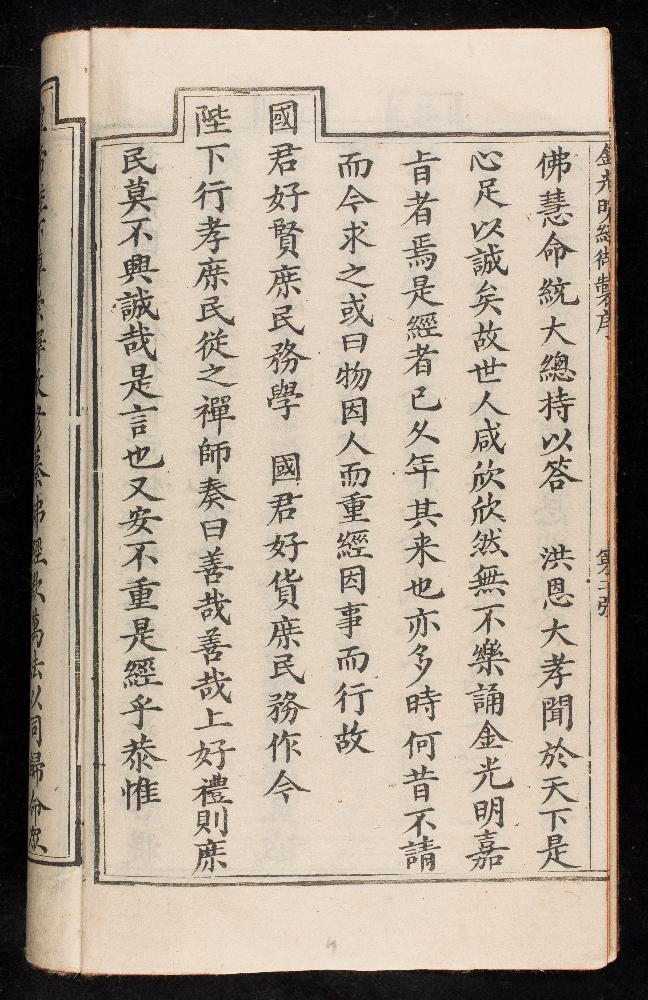 金光明經御製序 第三張
佛慧命統大總持以答 洪恩大孝聞於天下是
心足以誠矣故世人咸欣欣然無不樂誦金光明嘉
㫖者焉是經者已久年其来也亦多時何昔不請
而今求之或曰物因人而重經因事而行故
國君好賢庶民務學 國君好貨庶民務作今
陛下行孝庶民從之禪師奏曰善哉善哉上好禮則庶
民莫不興誠哉是言也又安不重是經乎恭惟
佛經
萬法以同歸命